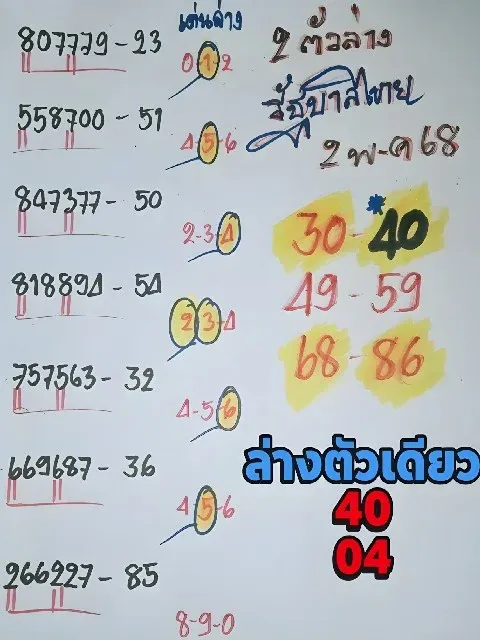 เด่นล่าง
807779 - 23
0-1-2
558700 - 51
4-5-6
847377 - 50
2-3-4
818894 - 54
2-3-4
757563 - 32
4-5-6
669687 - 36
4-5-6
266227 - 85
8-9-0
2 ตัวล่าง
2 พ-ค 68
30 - *40
49 - 59
68 - 86
ล่างตัวเดียว
40
04